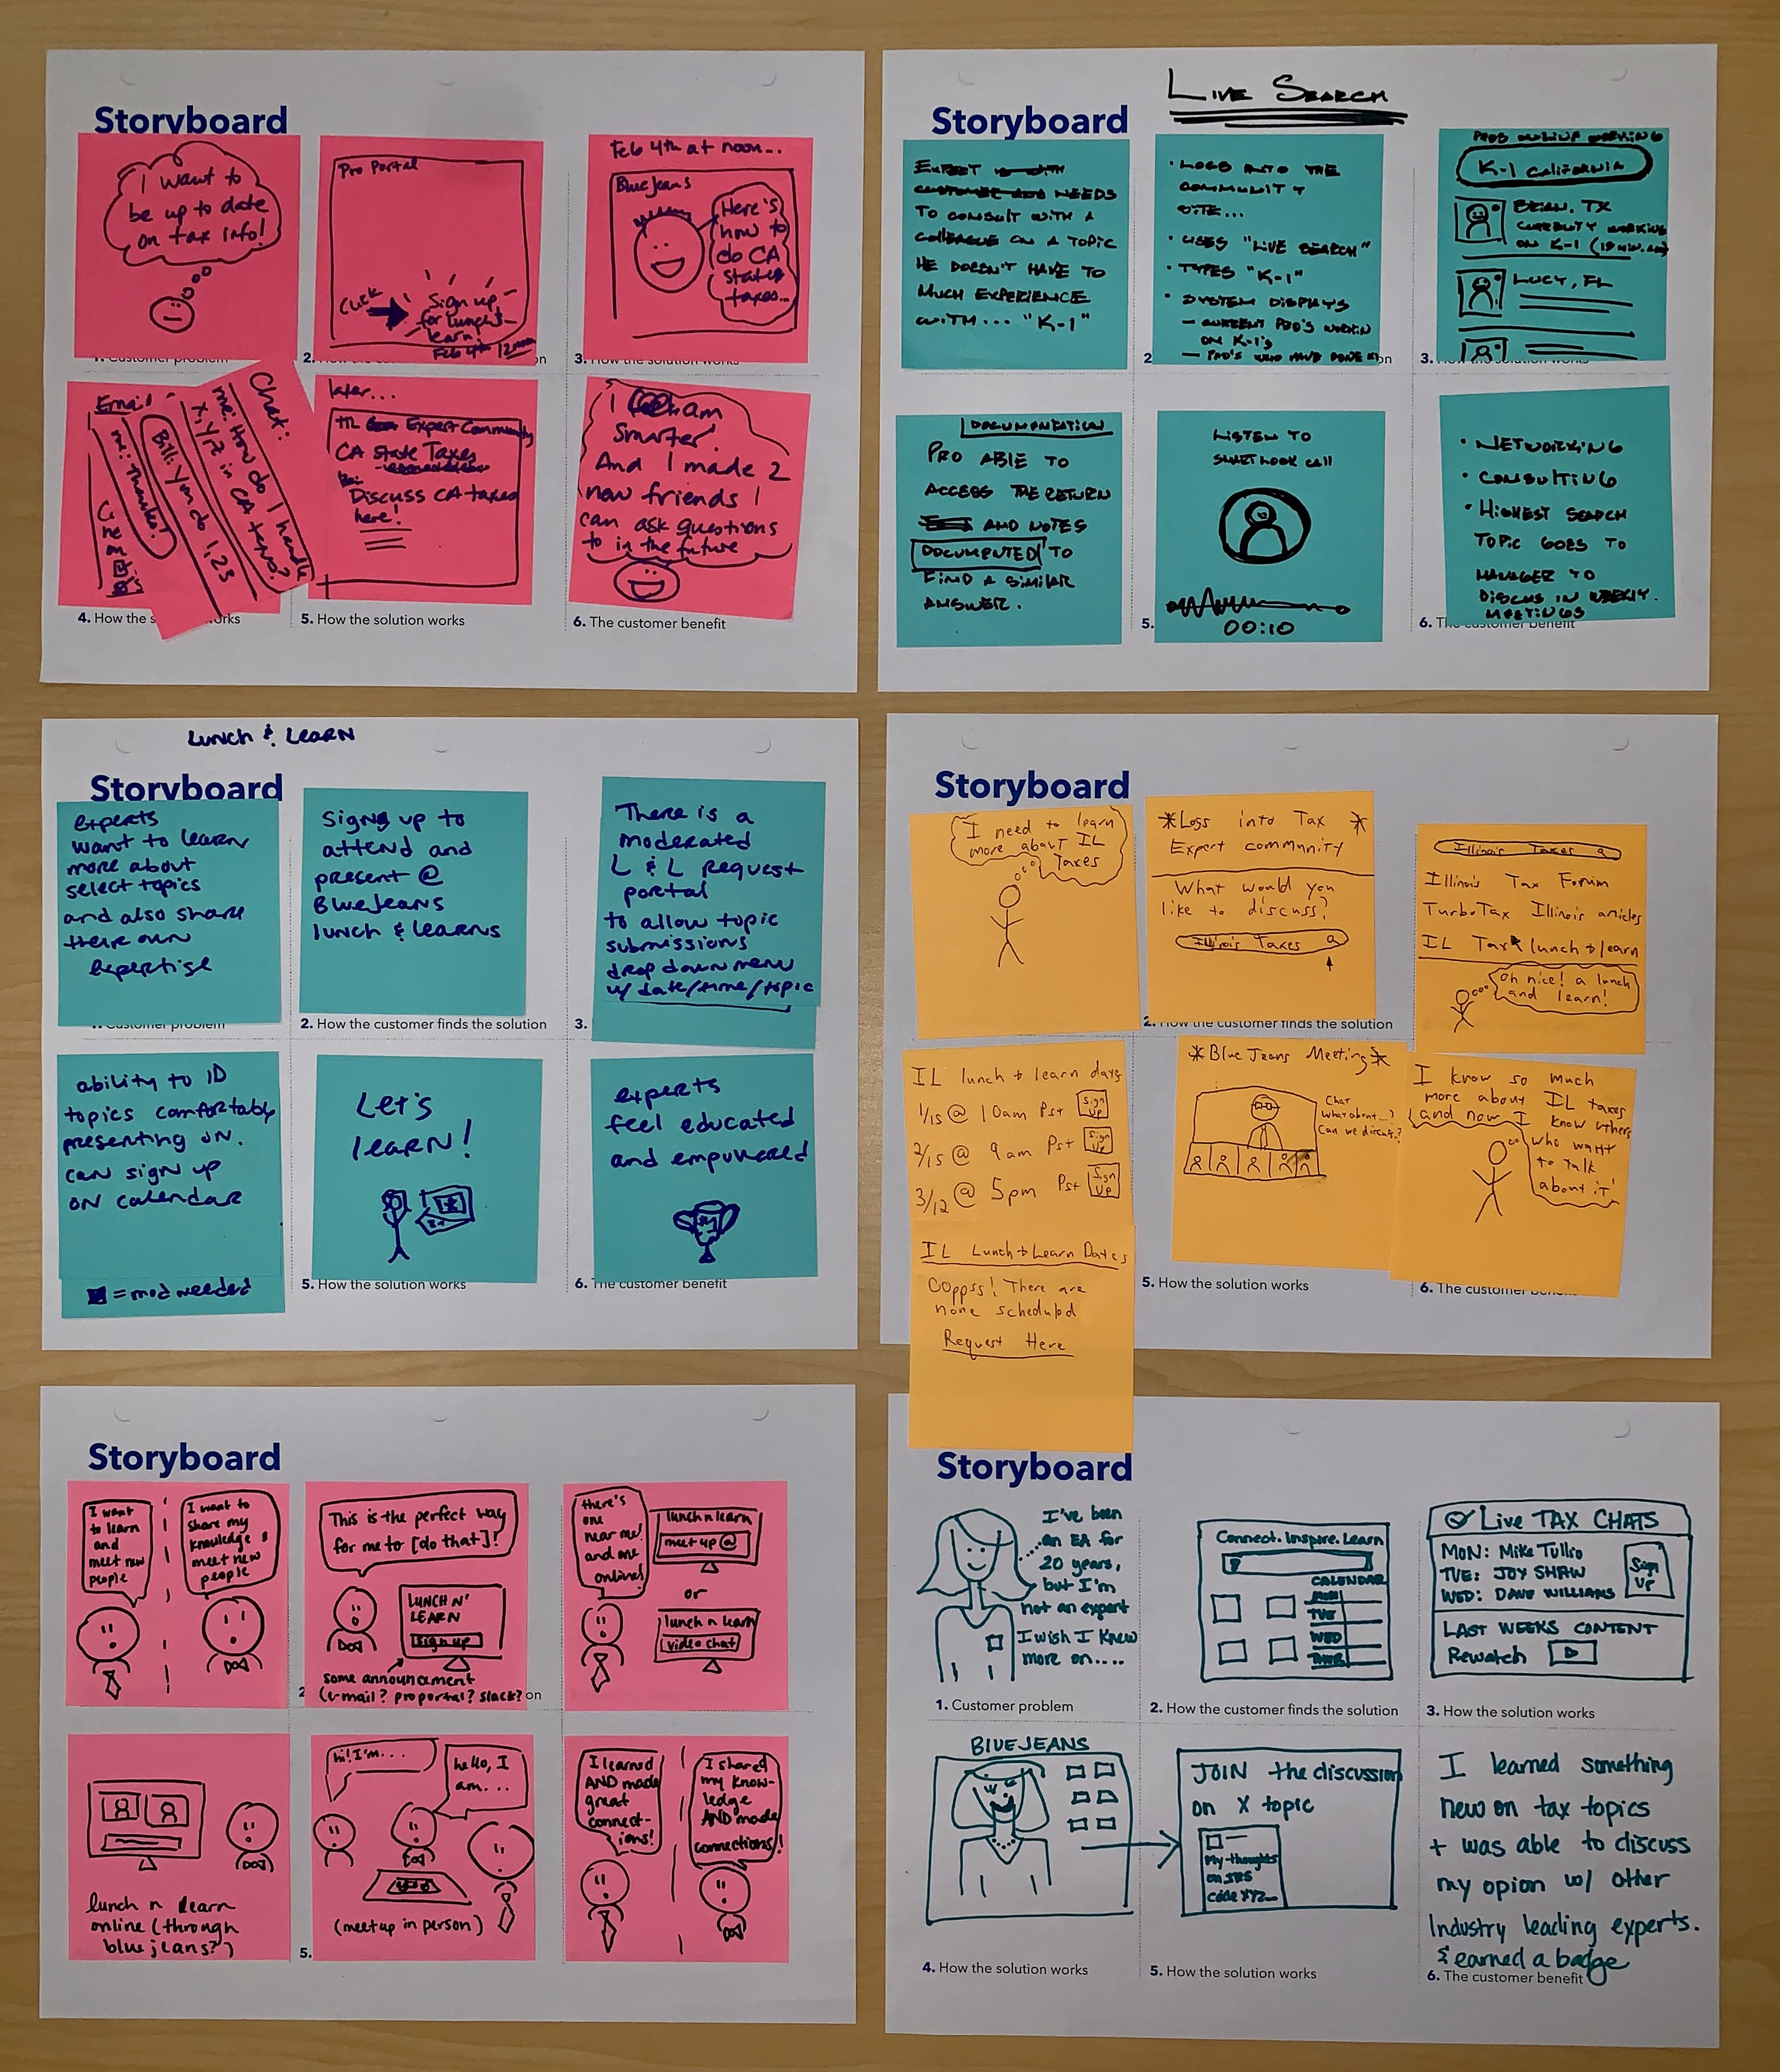 Storyboard
I want to
be up to date
on tax info!
1. Customer problem
Pro Portal
CLICK
Sign up
for lunch &
learn!
Feb 4th 12noon
2.
on
Feb 4th at noon...
BlueJeans
Here's
how to
do CA
state
taxes...
3. How the solution works
Email
Bill: You do 1,2,3
me: Thanks!
Chat:
me: How do I handle
X, Y, Z in CA taxes?
4. How the s
rks
later...
TTL Expert Community
CA State Taxes
Discuss CA taxes
here!
5. How the solution works
I am
smarter!
And I made 2
new friends I
can ask questions
to in the future
6. The customer benefit
LIVE SEARCH
Storyboard
EXPERT
NEEDS
TO CONSULT WITH A
COLLEAGUE ON A TOPIC
HE DOESN'T HAVE TO
MUCH EXPERIENCE
WITH... "K-1"
• LOGS INTO THE
COMMUNITY
SITE...
• USES "LIVE SEARCH"
• TYPES "K-1"
• SYSTEM DISPLAYS
- CURRENT PRO'S WORKIN
ON K-1's
- PRO'S WHO HAVE DONE K1
2
on
PROS ONLINE WORKING
K-1 CALIFORNIA
BRIAN, TX
CURRENTLY WORKING
ON K-1
LUCY, FL
3. How the solution works
DOCUMENTATION
PRO ABLE TO
ACCESS THE RETURN
AND NOTES
DOCUMENTED TO
FIND A SIMILAR
ANSWER.
LISTEN TO
SMARTLOOK CALL
00:10
5.
• NETWORKING
• CONSULTING
• HIGHEST SEARCH
TOPIC GOES TO
MANAGER TO
DISCUSS IN WEEKLY
MEETINGS
6. The customer benefit
LUNCH & LEARN
Storyboard
experts
want to learn
more about
select topics
and also share
their own
expertise
1. Customer problem
Signg up to
attend and
present @
BlueJeans
lunch & learns
2. How the customer finds the solution
There is a
moderated
L & L Request
portal
to allow topic
submissions
drop down menu
w/ date/time/topic
3.
ability to ID
topics comfortable
presenting on.
can sign up
on calendar
= mod needed
Let's
learn!
5. How the solution works
experts
feel educated
and empowered
6. The customer benefit
Storyboard
I need to learn
more about IL
Taxes
*Logs into Tax *
Expert community
What would you
like to discuss?
Illinois Taxes
2. How the customer finds the solution
Illinois Taxes
Illinois Tax Forum
TurboTax Illinois articles
IL Tax lunch & learn
Oh nice! a lunch
and learn!
IL lunch & learn days
1/15 @ 10am Pst Sign up
2/15 @ 9am Pst Sign up
3/12 @ 5pm Pst Sign up
IL Lunch & Learn Dates
Ooppss! There are
none scheduled
Request Here
*Blue Jeans Meeting*
Chat
What about...?
Can we discuss..?
5. How the solution works
I know so much
more about IL taxes
and now I know others
who want
to talk
about it!
6. The customer benefit
Storyboard
I want
to learn
and
meet new
people
I want to
share my
knowledge &
meet new
people
This is the perfect way
for me to [do that]!
LUNCH N'
LEARN
sign up
some announcement
(e-mail? proportal? slack?)
2
on
there's
one
near me!
and one
online!
lunch n learn
meet up @
or
lunch n learn
video chat
lunch n learn
online (through
bluejeans?)
hi! I'm...
hello, I
am...
(meetup in person)
5.
I learned
AND made
great
connect-
ions!
I shared
my know-
ledge
AND made
connections!
Storyboard
I've been
an EA for
20 years,
but I'm
not an expert
I wish I knew
more on....
1. Customer problem
Connect. Inspire. Learn
CALENDAR
MON
TUE
WED
THUR
2. How the customer finds the solution
Live TAX CHATS
MON: Mike Tullio
TUE: JOY SHAW
WED: DAVE WILLIAMS
Sign
up
LAST WEEKS CONTENT
Rewatch
3. How the solution works
BLUEJEANS
4. How the solution works
JOIN the discussion
on X topic
My thoughts
on IRS
code XYZ...
5. How the solution works
I learned something
new on tax topics
+ was able to discuss
my opion w/ other
Industry leading experts.
& earned a badge
6. The customer benefit